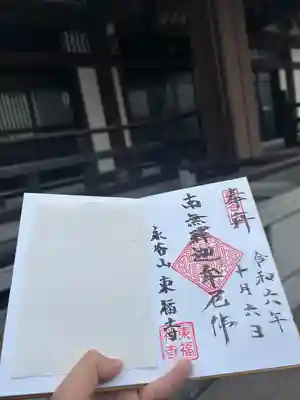 奉拝
令和六年
十月六日
南無釋迦牟尼佛
永谷山 東福寺
東福
寺